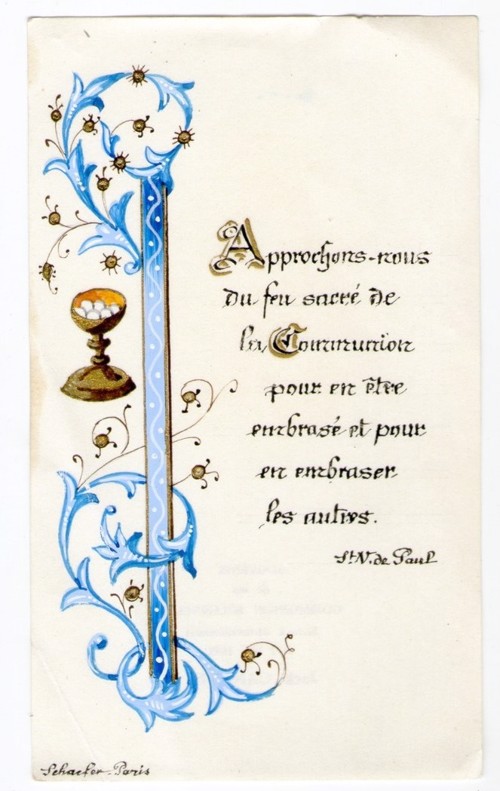 Approchons-nous
du feu sacré de
la Communion
pour en être
embrasé et pour
en embraser
les autres.
St V. de Paul
Schaefer-Paris